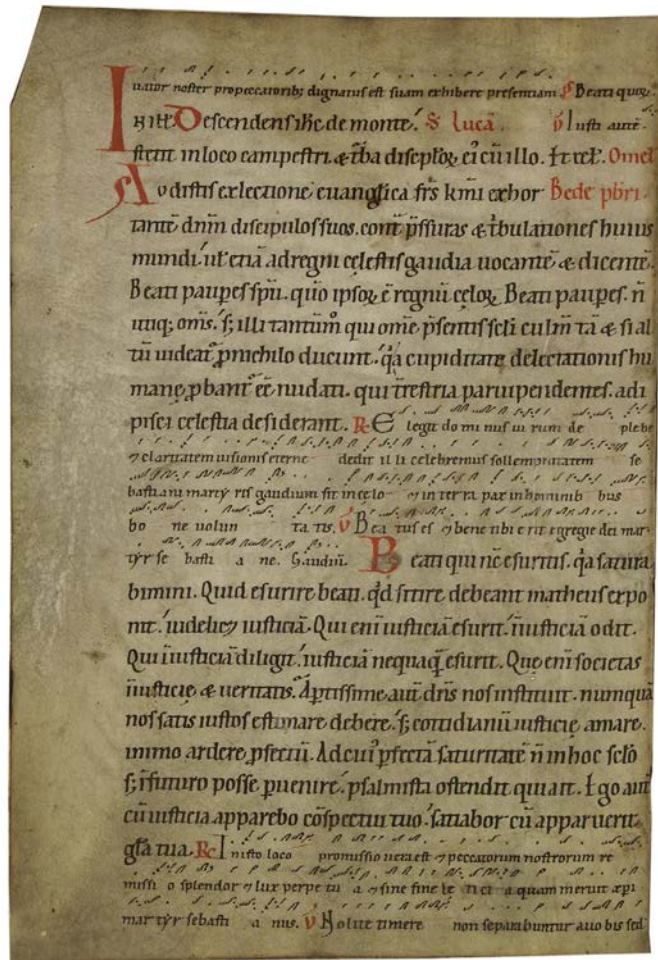 uator noster pro peccatorib; dignatus est suam exhibere presentiam. ps Beati quoꝝ.
In illt Descendens ihc de monte. S Lucā. v Iusti autē.
stetit in loco campestri. & t̄ba discip̄loꝝ eı᷒ cū illo. Et rel̄. Omel
Audistis ex lectione euangl̄ica fr̄s km̄i exhor Bede pb̄ri.
tantē dn̄m discipulos suos. cont̄ p̄ssuras & t̄bulationes huius
mundi. ut̄ etiā ad regni celestis gaudia uocantē & dicentē.
Beati paup̄es sp̄u. quō ipsoꝝ ē regnū celoꝝ. Beati paup̄es. n̄
utiq; om̄s. s; illi tantūm̊ qui om̄e p̄sentis sc̄li culm̄ tā & si al
tū uideat᷑ p̄ nichilo ducunt. q̊a cupiditate delectationis hu
manę p̄bant᷑ eē nudati. qui t̄restria paruipendentes. adi
pisci celestia desiderant. R E legit do mi nus ui rum de plebe
⁊ claritatem uisionis eterne dedit il li celebremus sollempnitatem se
bastiani martẏ ris gaudium sit in celo ⁊ in ter ra pax in hominib bus
bo ne uolun ta tis. v Bea tus es ⁊ bene tibi e rit egregie dei mar
tẏr se basti a ne. Gaudiū. Beati qui nc̄ esuritis. q̊a satura
bimini. Quid esurire beati. qd̄ sitire debeant matheus expo
nit. uidelic⁊ iusticiā. Qui enī iusticiā esurit. iniusticiā odit.
Qui īiusticiā diligit. iusticiā nequaq̄ esurit. Quę enī societas
īiusticię & ueritatis. Aptissime aut̄ dn̄s nos instituit. numquā
nos satis iustos estimare debere. s; cottidianū iusticię amare.
immo ardere p̄fectū. Ad cuı᷒ p̄fectā saturitatē n̄ in hoc sc̄lo
s; ī futuro posse p̄uenire. psalmista ostendit qui ait. Ego aut̄
cū iusticia apparebo cōspectui tuo. satiabor cū apparuerit
gl̄a tua. R I n isto loco promissio uera est ⁊ peccatorum nostrorum re
missi o splendor ⁊ lux perpe tu a ⁊ sine fine le ti ci a quam meruit xp̄i
mar tẏr sebasti a nus. v Nolite timere non separabuntur a uo bis sed